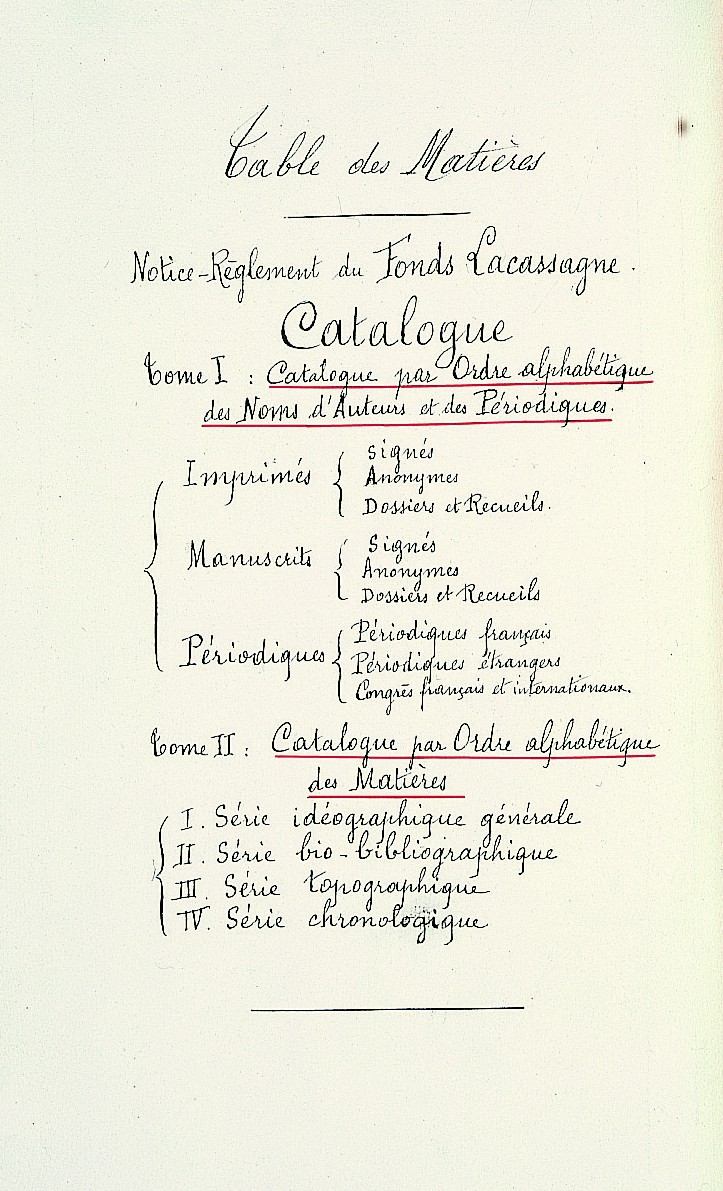 Table des Matières
Notice-Règlement du Fonds Lacassagne.
Catalogue
Tome I : Catalogue par Ordre alphabétique
des Noms d'Auteurs et des Périodiques.
Imprimés
Signés
Anonymes
Dossiers et Recueils.
Manuscrits
Signés
Anonymes
Dossiers et Recueils
Périodiques
Périodiques français
Périodiques étrangers
Congrès français et internationaux.
Tome II : Catalogue par Ordre alphabétique
des Matières
I. Série idéographique générale
II. Série bio-bibliographique
III. Série topographique
IV. Série chronologique